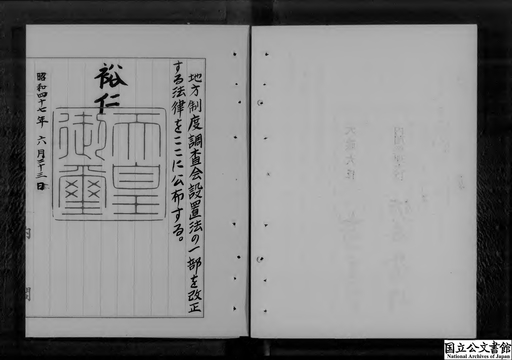 地方制度調査会設置法の一部を改正
する法律をここに公布する。
裕仁
天皇
御璽
昭和四十七年 六月二十三日
国立公文書館
National Archives of Japan